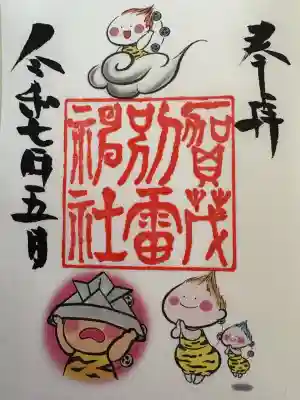 奉拝
賀茂
別雷
神社
令和七年五月